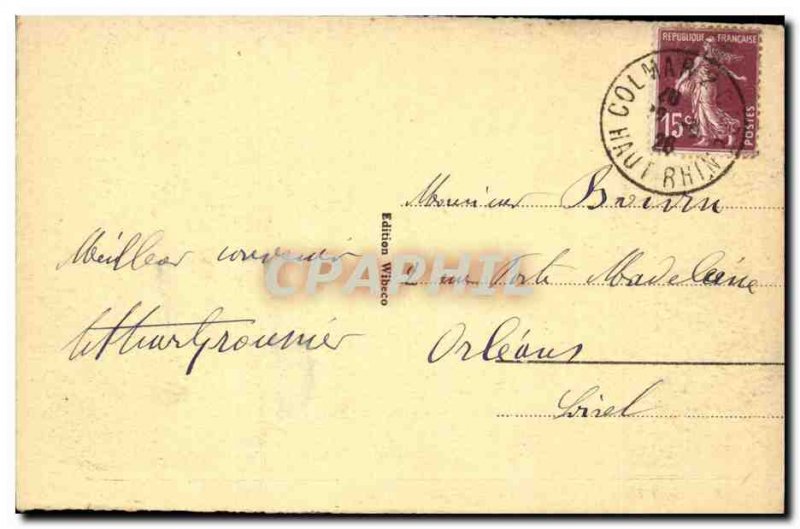 REPUBLIQUE FRANÇAISE
15c
POSTES
COLMAR
HAUT RHIN
28
Monsieur
rue Porte Madeleine
Orléans
Loiret
Meilleur souvenir
Edition Wibeco
CPAPHIL